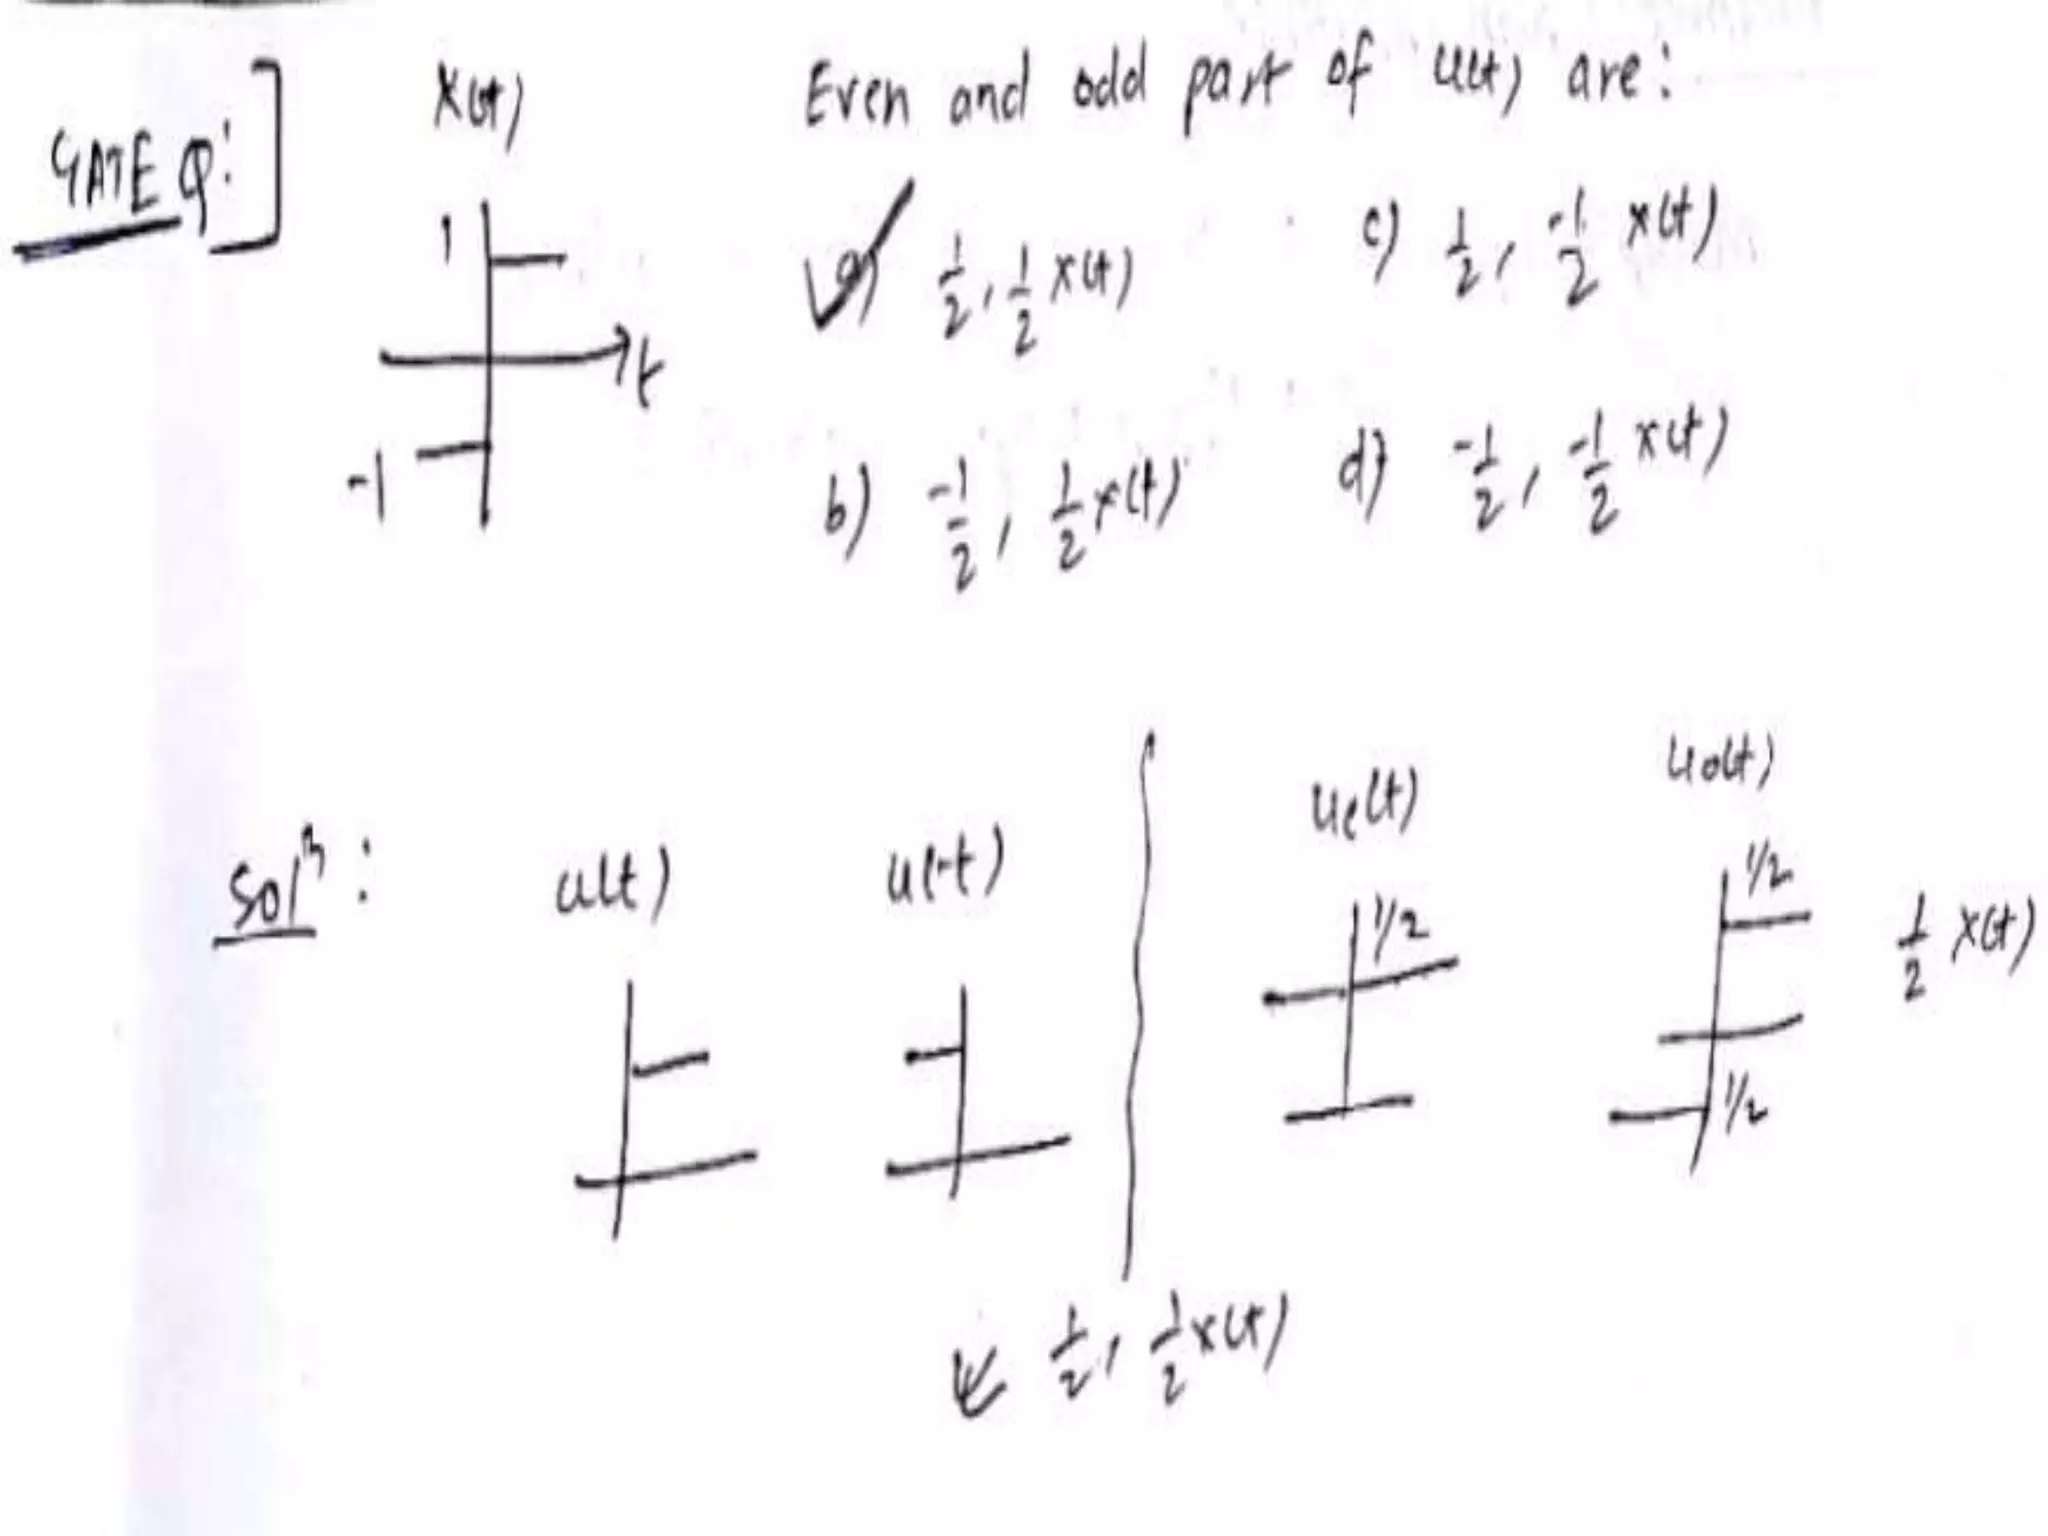 GATE Q:]
x(t)
Even and odd part of u(t) are:
1
-1
t
a) 1/2, 1/2 x(t)
c) 1/2, -1/2 x(t)
b) -1/2, 1/2 x(t)
d) -1/2, -1/2 x(t)
Solⁿ:
u(t)
u(-t)
ue(t)
uo(t)
1/2
1/2
1/2
1/2 x(t)
1/2, 1/2 x(t)